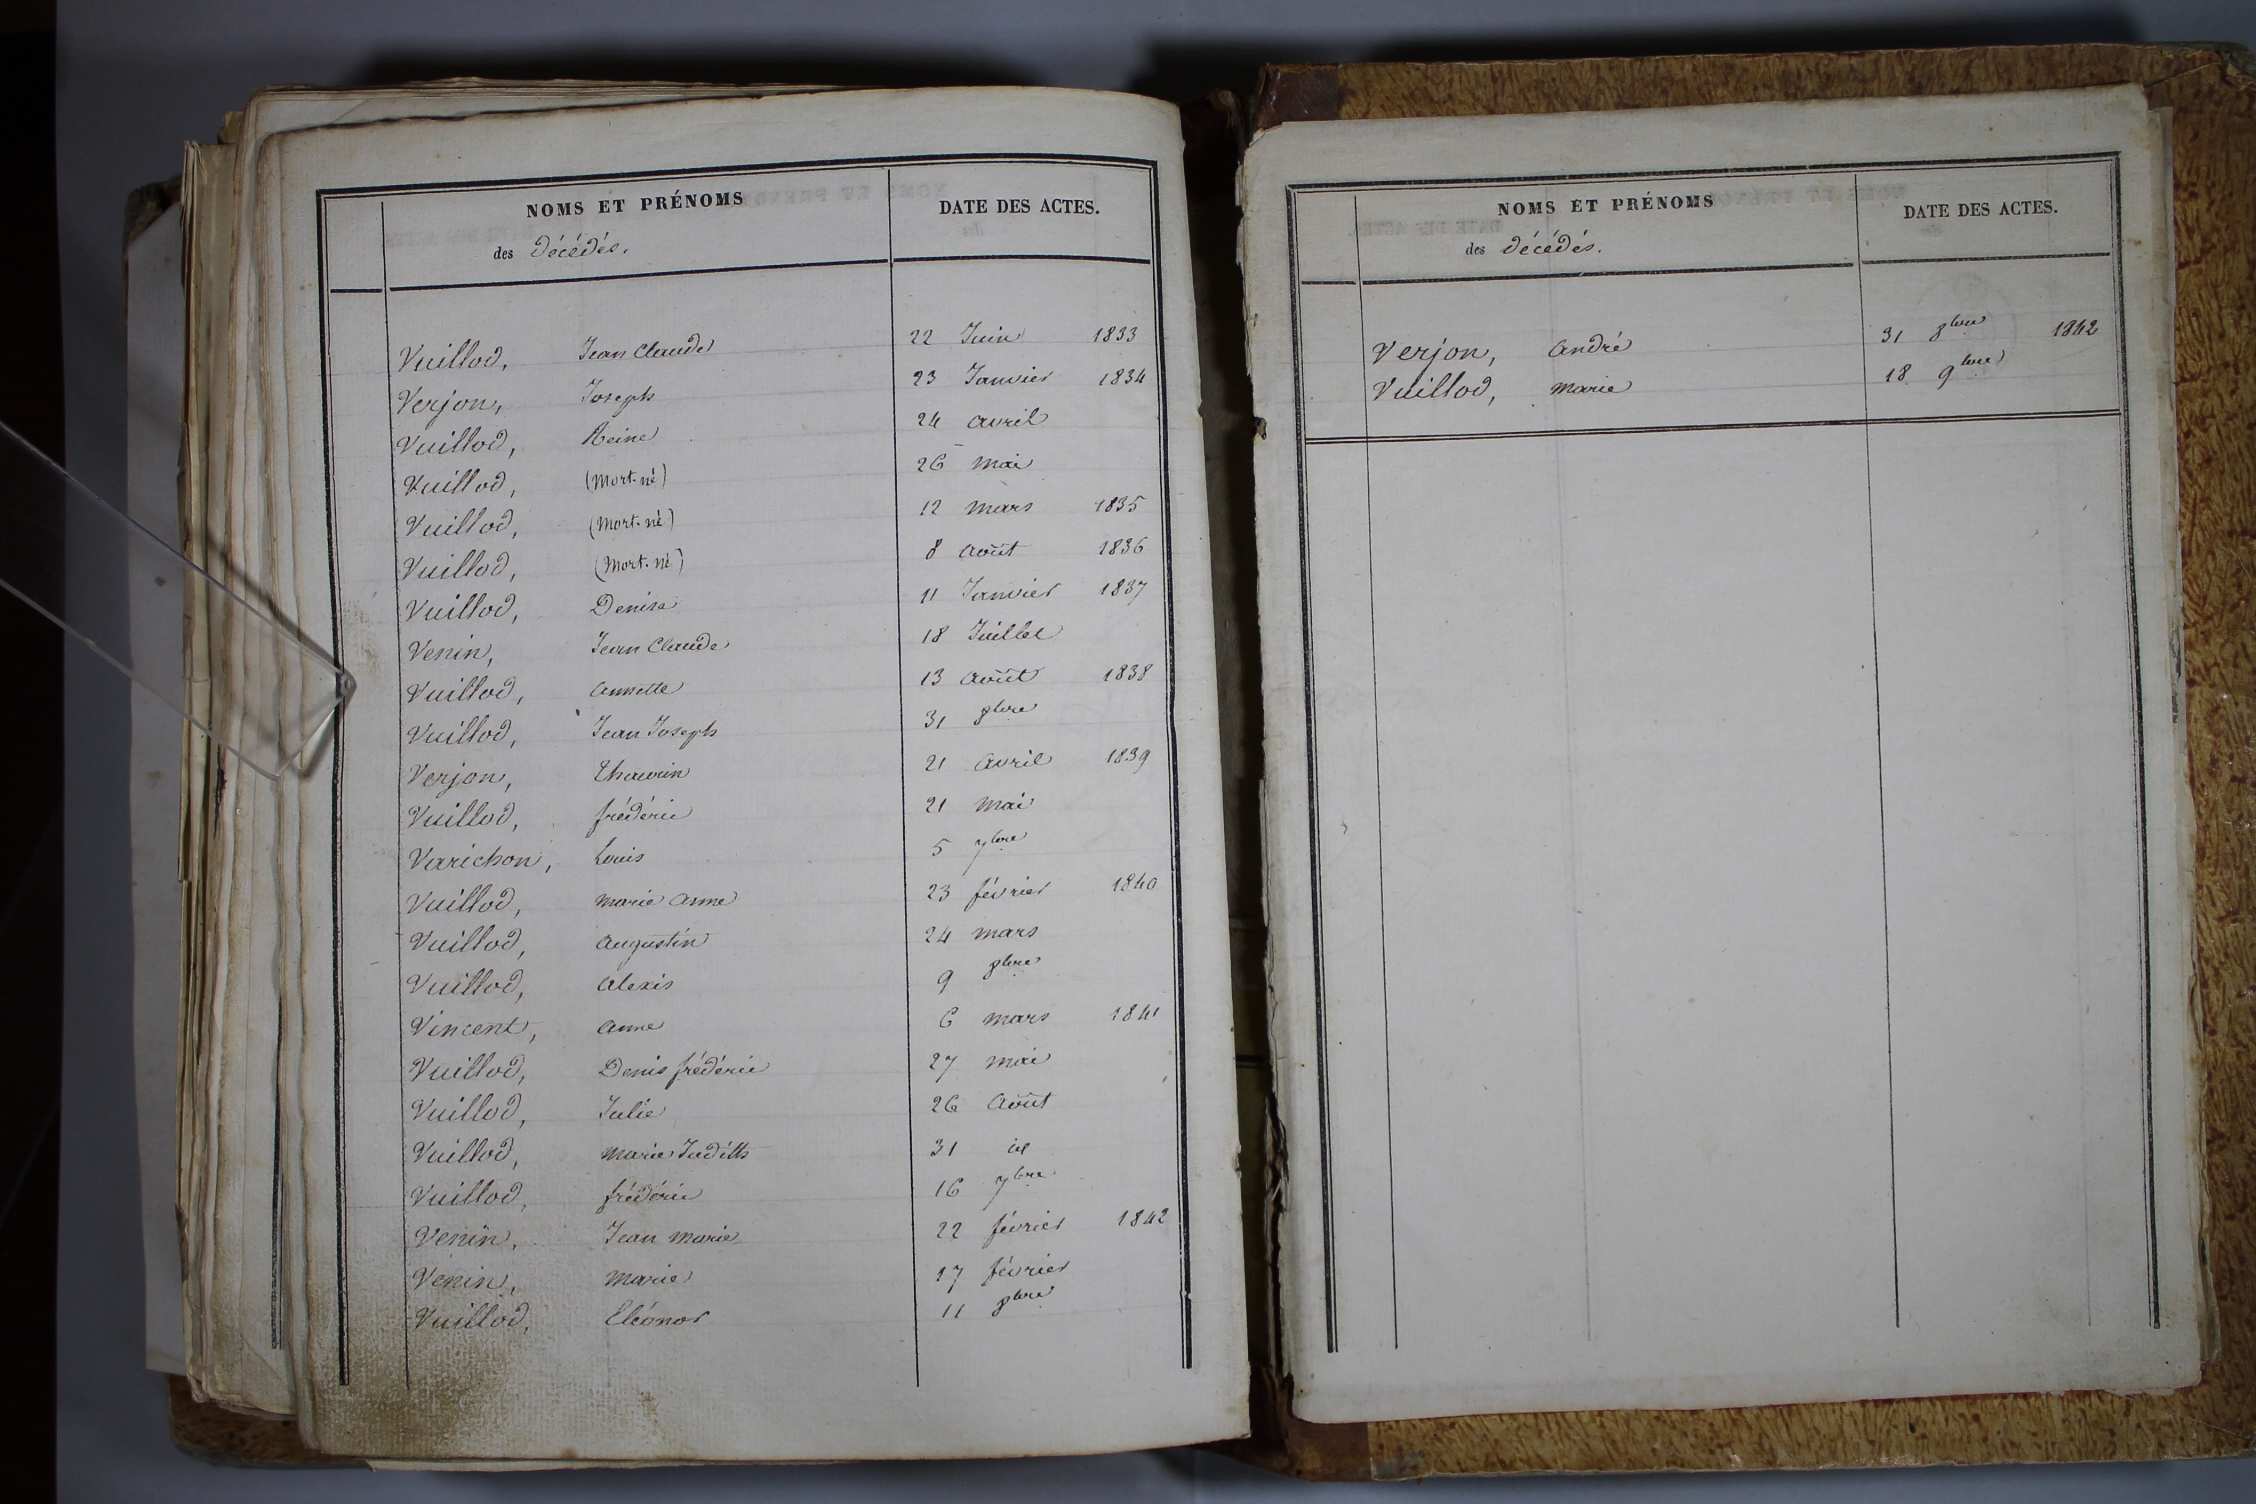 NOMS ET PRÉNOMS
des Décédés.
DATE DES ACTES.
Vuillod, Jean Claude 22 Juin 1833
Verjon, Joseph 23 Janvier 1834
Vuillod, Reine 24 avril
Vuillod, (Mort-né) 26 mai
Vuillod, (Mort-né) 12 mars 1835
Vuillod, (Mort-né) 8 août 1836
Vuillod, Denise 11 Janvier 1837
Venin, Jean Claude 18 Juillet
Vuillod, annette 13 août 1838
Vuillod, Jean Joseph 31 8bre
Verjon, 21 avril 1839
Vuillod, frédéric 21 mai
Varichon, Louis 5 7bre
Vuillod, marie anne 23 février 1840
Vuillod, augustin 24 mars
Vuillod, alexis 9 8bre
Vincent, anne 6 mars 1841
Vuillod, Denis frédéric 27 mai
Vuillod, Julie 26 Août
Vuillod, marie Judith 31 id
Vuillod, frédéric 16 7bre
Venin, Jean marie 22 février 1842
Venin, marie 17 février
Vuillod, Eléonor 11 8bre
NOMS ET PRÉNOMS
des Décédés.
DATE DES ACTES.
Verjon, andré 31 8bre 1842
Vuillod, marie 18 9bre